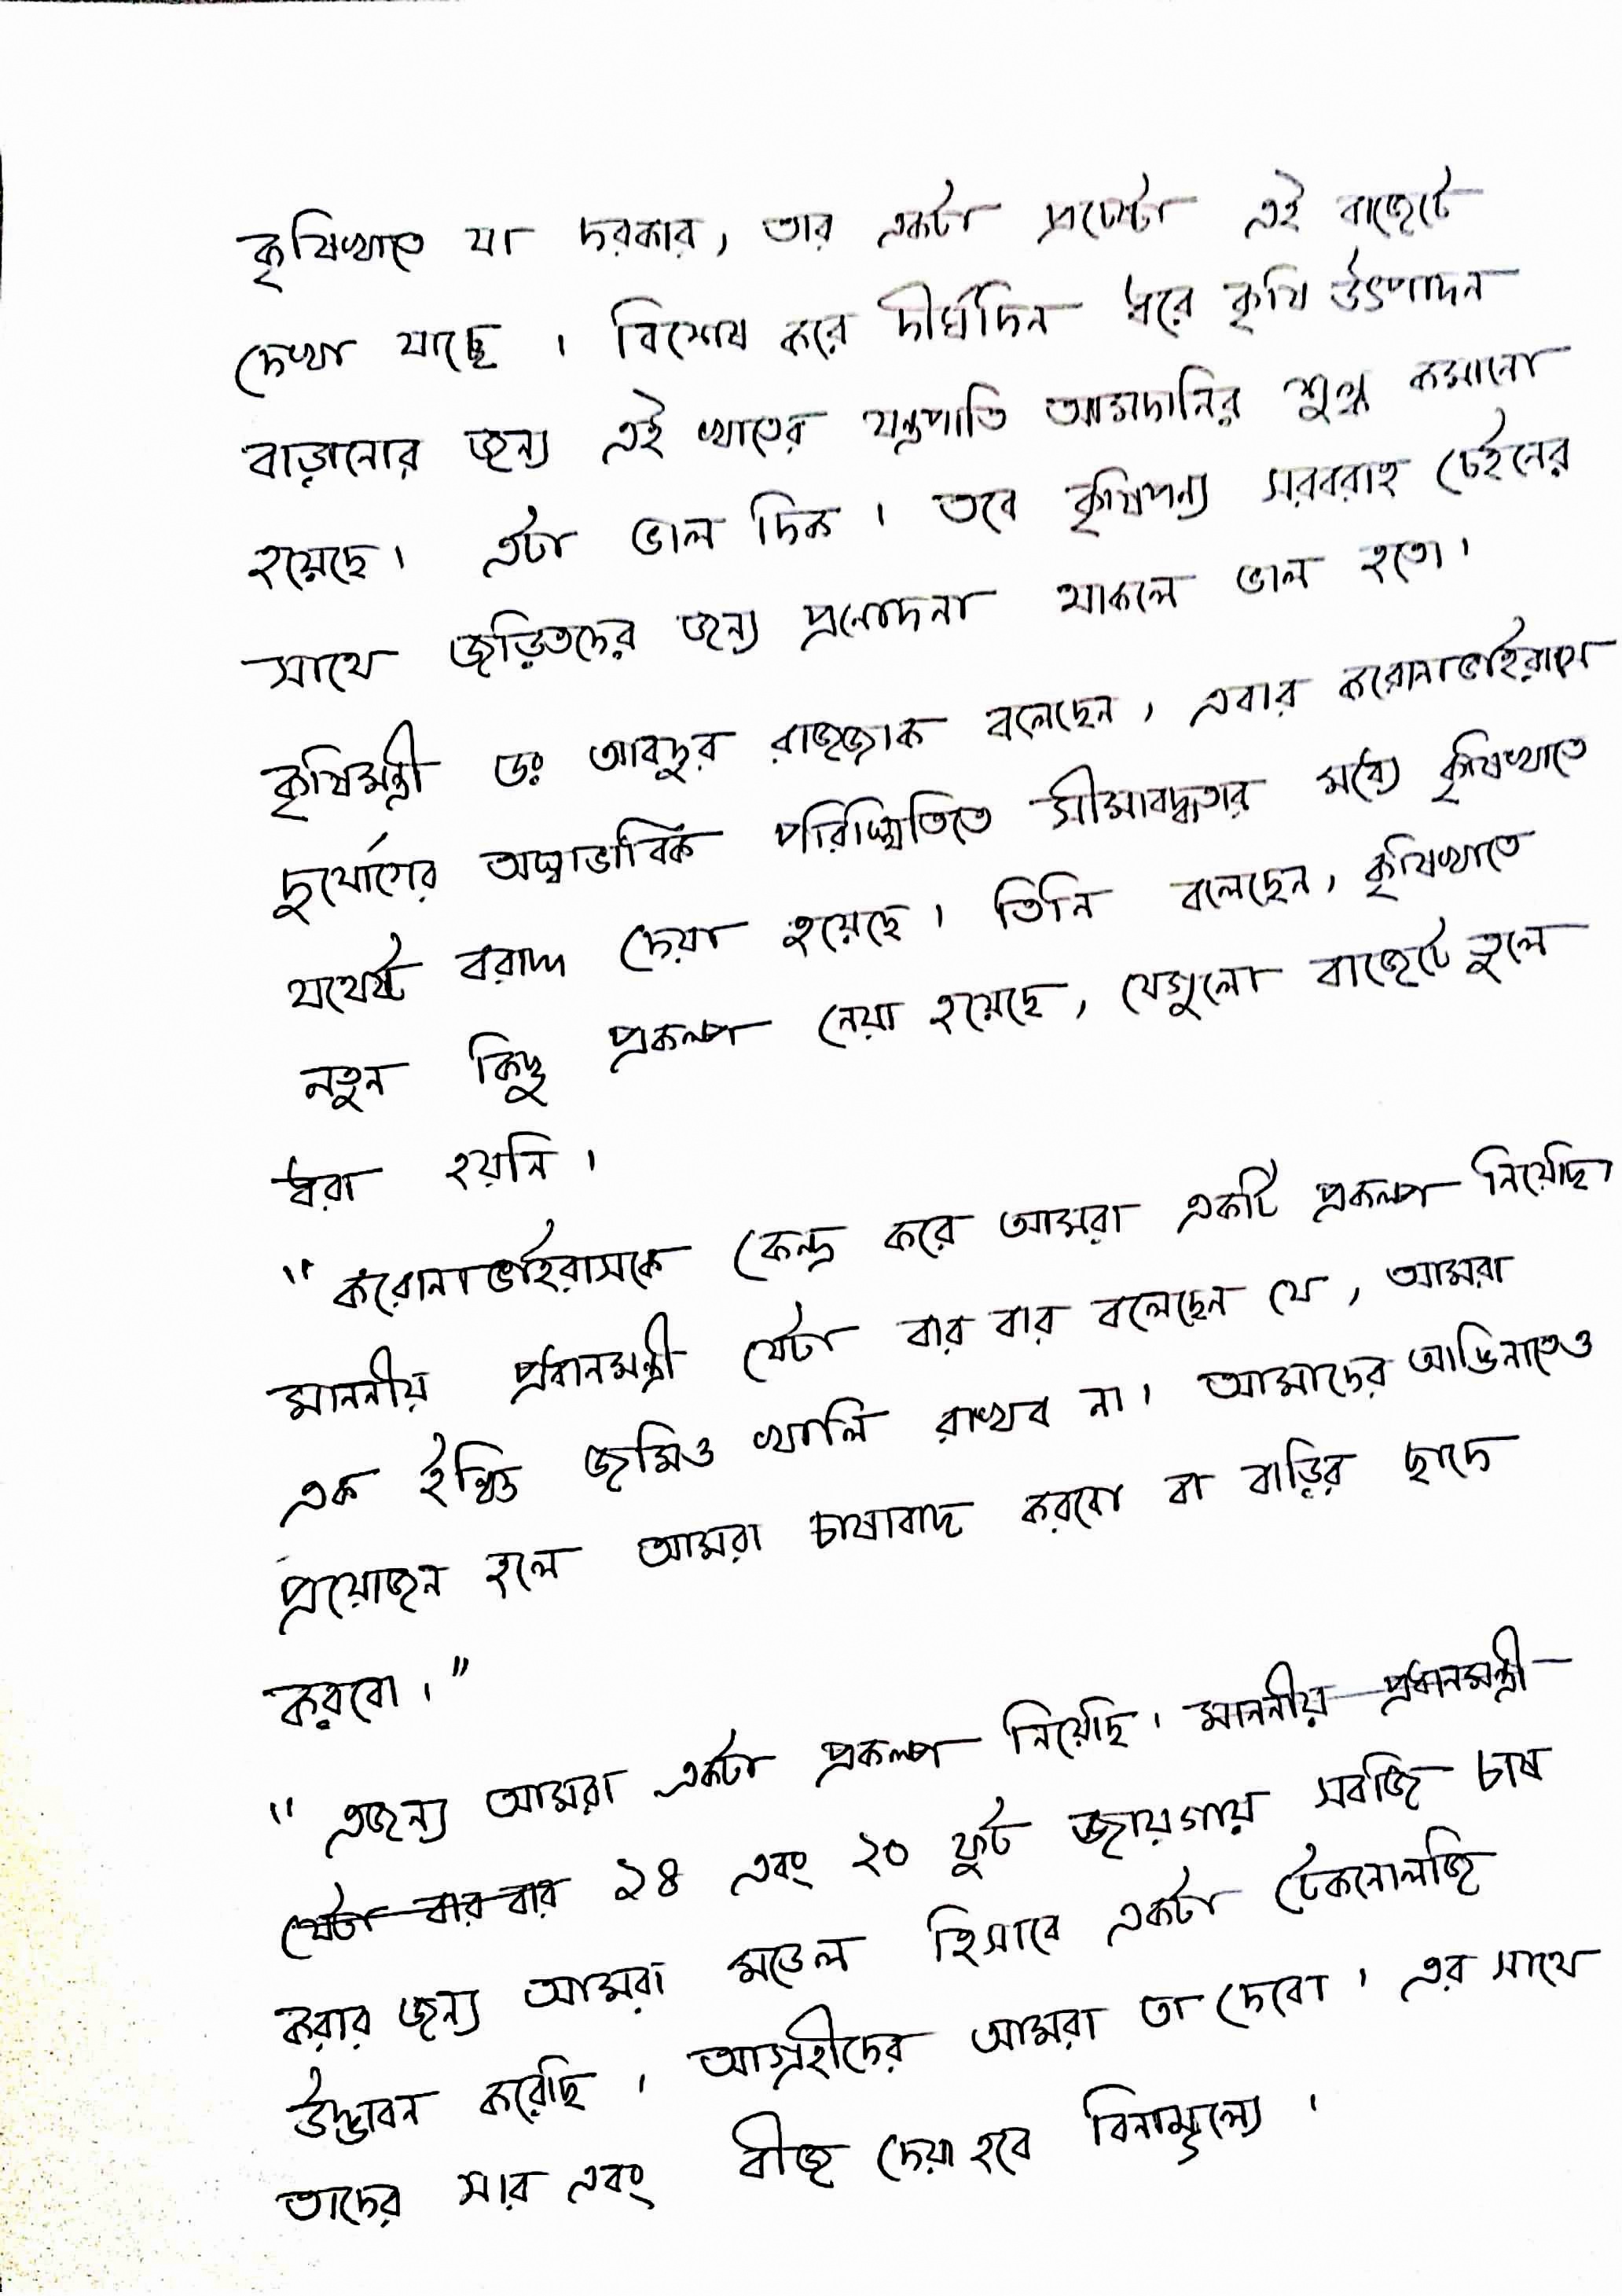 কৃষিখাতে যা দরকার, তার একটা প্রচেষ্টা এই বাজেটে
দেখা যাচ্ছে । বিশেষ করে দীর্ঘদিন ধরে কৃষি উৎপাদন
বাড়ানোর জন্য এই খাতের যন্ত্রপাতি আমদানির শুল্ক কমানো
হয়েছে। এটা ভাল দিক । তবে কৃষিপন্য সরবরাহ চেইনের
সাথে জড়িতদের জন্য প্রনোদনা থাকলে ভাল হতো।
কৃষিমন্ত্রী ডঃ আবদুর রাজ্জাক বলেছেন, এবার করোনাভাইরাসে
দুর্যোগের অস্বাভাবিক পরিস্থিতিতে সীমাবদ্ধতার মধ্যে কৃষিখাতে
যথেষ্ট বরাদ্দ দেয়া হয়েছে। তিনি বলেছেন, কৃষিখাতে
নতুন কিছু প্রকল্প নেয়া হয়েছে, যেগুলো বাজেটে তুলে
ধরা হয়নি ।
" করোনাভাইরাসকে কেন্দ্র করে আমরা একটি প্রকল্প নিয়েছি।
মাননীয় প্রধানমন্ত্রী যেটা বার বার বলেছেন যে, আমরা
এক ইঞ্চিও জমিও খালি রাখব না। আমাদের আঙিনাতেও
প্রয়োজন হলে আমরা চাষাবাদ করবো বা বাড়ির ছাদে
করবো।"
" এজন্য আমরা একটা প্রকল্প নিয়েছি। মাননীয় প্রধানমন্ত্রী
যেটা বার বার ২৪ এবং ২০ ফুট জায়গায় সবজি চাষ
করার জন্য আমরা মডেল হিসাবে একটা টেকনোলজি
উদ্ভাবন করেছি । আগ্রহীদের আমরা তা দেবো । এর সাথে
তাদের সার এবং বীজ দেয়া হবে বিনামূল্যে ।